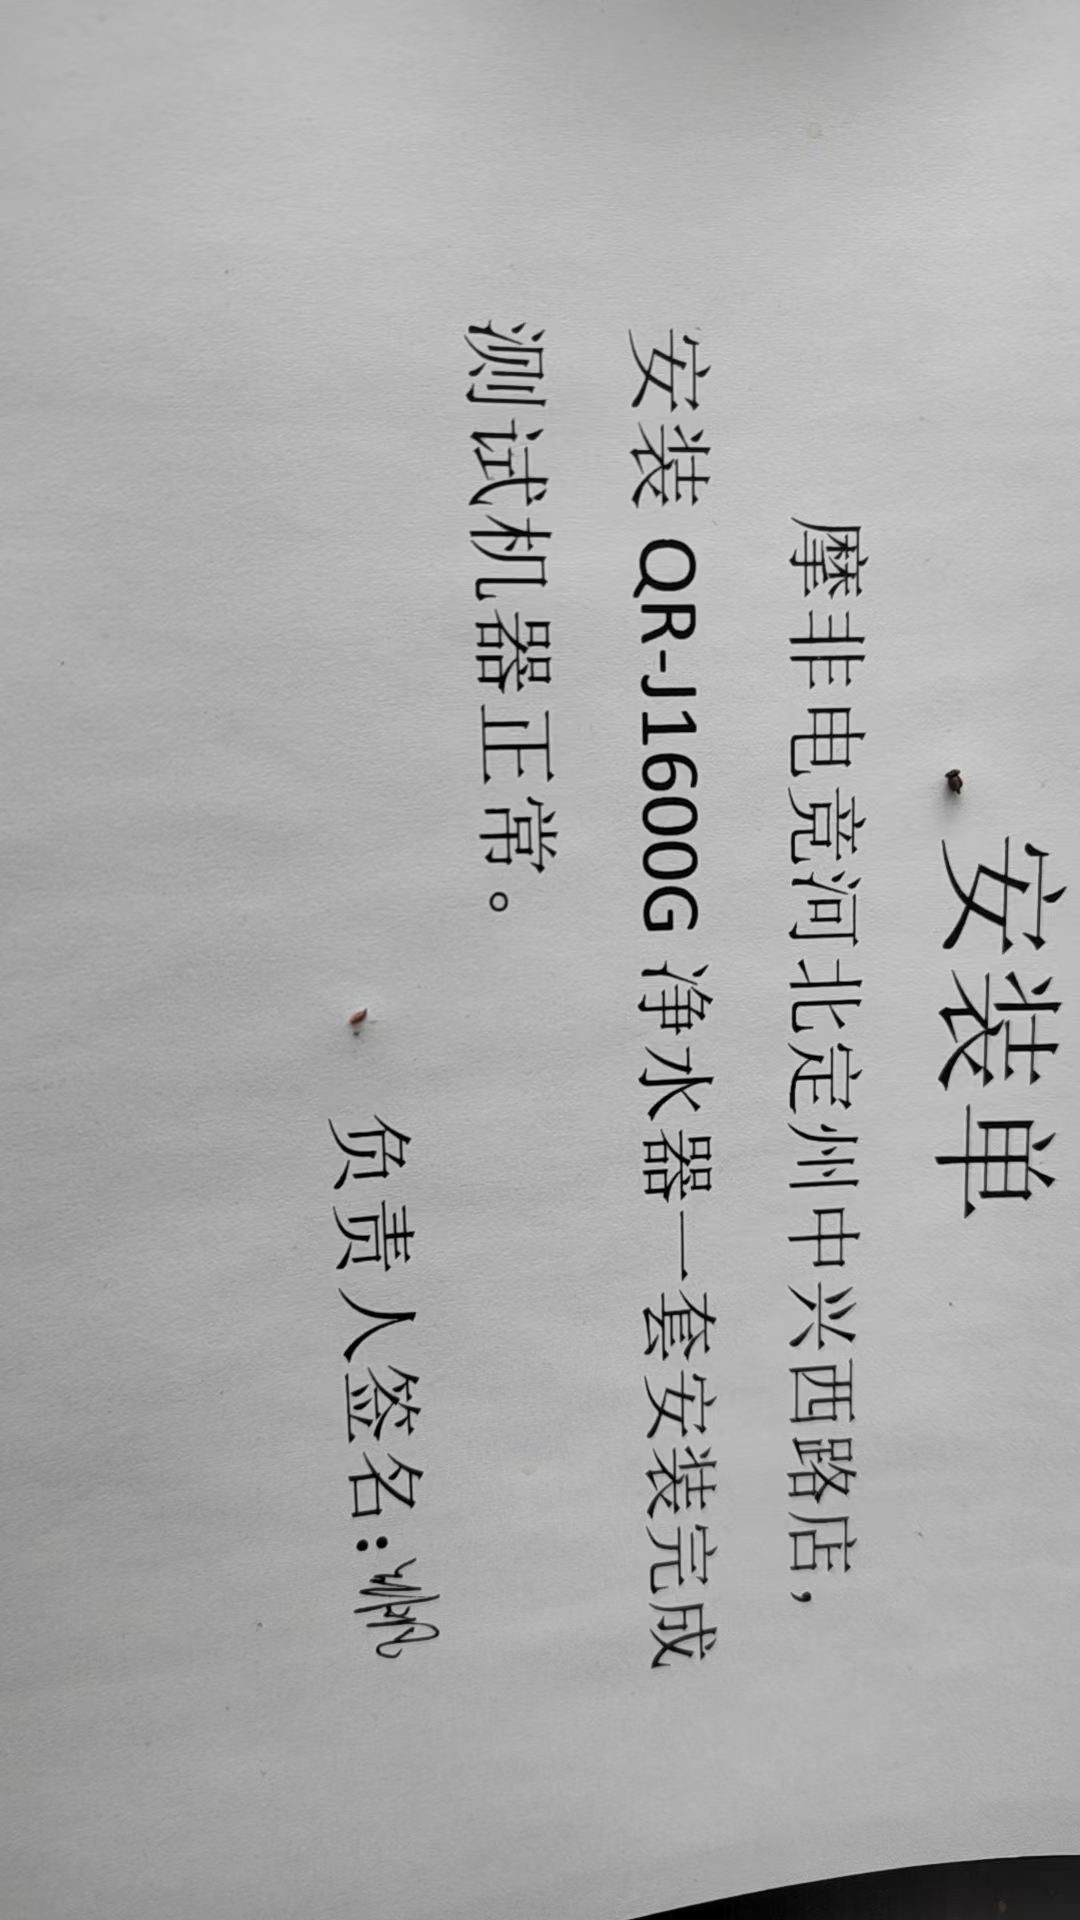 安装单
摩非电竞河北定州中兴西路店，
安装 QR-J1600G 净水器一套安装完成
测试机器正常。
负责人签名：